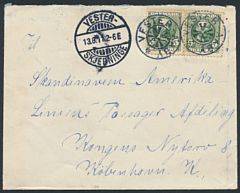 VESTER-
SKJERNINGE
13.6.12.2-6E
VESTER
Skandinavien Amerika
Liniens Passager Afdeling
Kongens Nytorv 8
København K.